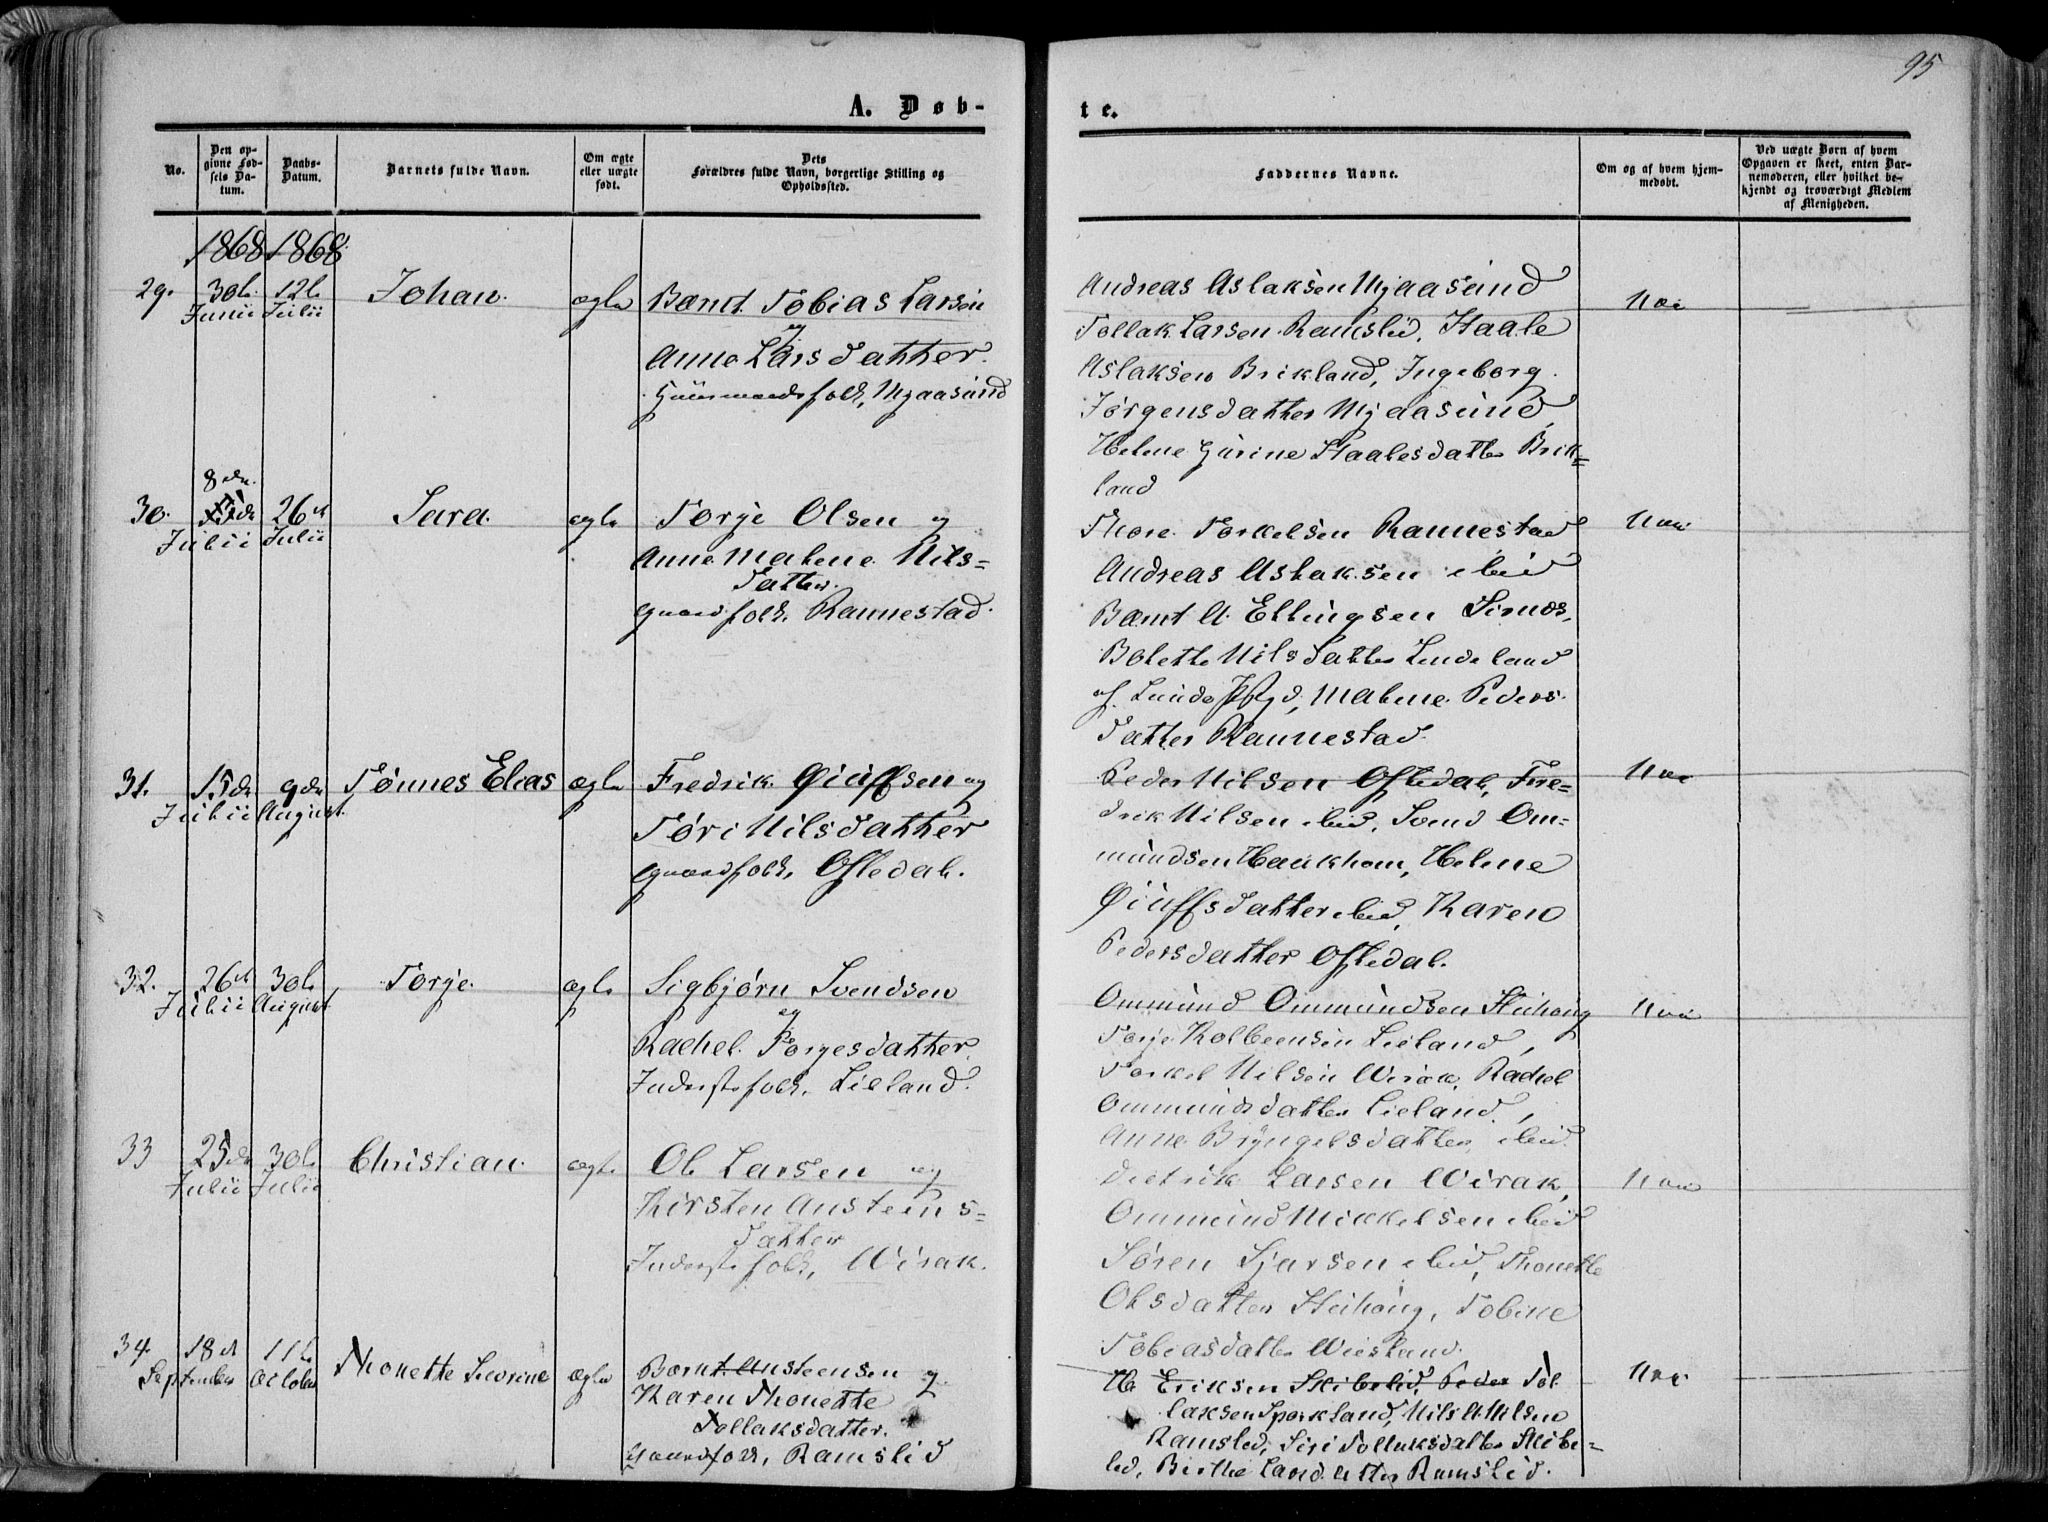 95
A. Døb-
te.
No.
Den op-
givne Fød-
sels Da-
tum.
Daabs-
Datum.
Barnets fulde Navn.
Om ægte
eller uægte
født.
Dets
Forældres fulde Navn, borgerlige Stilling og
Opholdssted.
Faddernes Navne.
Om og af hvem hjem-
medøbt.
Ved uægte Børn af hvem
Opgaven er skeet, enten Bar-
nemoderen, eller hvilket be-
kjendt og troværdigt Medlem
af Menigheden.
1868 1868
29.
30te
Junii
12te
Julii
Johan.
ægte
Bernt Tobias Larsen
og
Anne Larsdatter.
Huusmandsfolk, Mjaasund
Andreas Aslaksen Mjaasund
Tollak Larsen Ramslid, Staale
Aslaksen Brikland, Ingeborg
Jørgensdatter Mjaasund
Helene Gurine Staalesdatter Brik=
land
Nei
30.
8de
Julii
26de
Julii
Sara.
ægte
Torje Olsen og
Anne Malene Nils=
datter.
Gaardfolk, Rannestad.
Thore Torkelsen Rannestad
Andreas Aslaksen ibid
Bernt A. Ellingsen Sirnes,
Bolette Nilsdatter Lindeland
af Lunde Pgd, Malene Peders
datter Rannestad.
Nei
31.
15de
Julii
9de
August
Tønnes Elias
ægte
Fredrik Øiuffsen og
Tøri Nilsdatter
Gaardfolk, Ofstedal.
Peder Nilsen Ofstedal, Fre=
drik Nilsen ibid, Svend Om=
mundsen Haukhom, Helene
Øiuffsdatter ibid, Karen
Pedersdatter Ofstedal.
Nei
32.
26de
Julii
30te
August
Torje.
ægte
Sigbjørn Svendsen
og
Rachel Torgesdatter
Inderstefolk, Lieland.
Ommund Ommundsen Heihoug
Torje Kolbeensen Lieland,
Torkel Nilsen Wirak, Rachel
Ommundsdatter Lieland,
Anne Bryngelsdatter ibid.
Nei
33
25de
Julii
30te
Julii
Christian.
ægte
Ole Larsen og
Kirsten Austeens=
datter
Inderstefolk, Wirak.
Diedrik Larsen Wirak,
Ommund Mikkelsen ibid
Søren Sjursen ibid, Thonette
Olsdatter Heihoug, Tobine
Tobiasdatter Wiesland.
Nei
34.
18de
September
11te
October
Thonette Severine
ægte
Bernt Austeensen og
Karen Thonette
Tollaksdatter.
Gaardfolk, Ramslid
Ole Eriksen Skibeslid, Peder Tol
laksen Sporkland, Nils A. Nilsen
Ramslid, Siri Tollaksdatter Skibe=
lid, Birthe Larsdatter Ramslid.
Nei